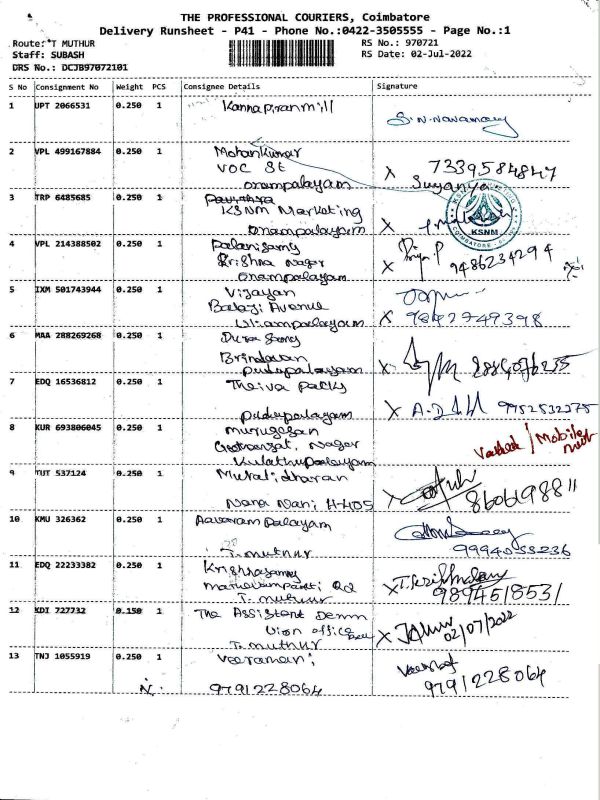 THE PROFESSIONAL COURIERS, Coimbatore
Delivery Runsheet - P41 - Phone No.:0422-3505555 - Page No.:1
Route: T MUTHUR
RS No.: 970721
Staff: SUBASH
RS Date: 02-Jul-2022
DRS No.: DCJB97072101
S No Consignment No Weight PCS Consignee Details Signature
1 UPT 2066531 0.250 1 Kannapiranmill
S.N.Navamany
2 VPL 499167884 0.250 1 Mohankumar
VOC St
onampalayam
X 7339584847
Suganya
3 TRP 6485685 0.250 1
KSNM Marketing
onampalayam
X
KSNM
COIMBATORE
4 VPL 214388502 0.250 1 Palanisamy
Krishna Nagar
onampalayam
X Priya.P 9486234294
5 IXM 501743944 0.250 1 Vijayan
Balaji Avenue
Uliampalayam
X 9842749398
6 MAA 288269268 0.250 1 Durai Samy
Brindavan
pudupalayam
X
7 EDQ 16536812 0.250 1 Theiva Packs
pudupalayam
X 9952532275
8 KUR 693806045 0.250 1 murugesan
Nagar
Kulathupalayam
/ Mobile
9 TUT 537124 0.250 1 Muralidharan
Nana Nani H-405
X 8606198811
10 KMU 326362 0.250 1 Aavaram Palayam
T.muthur
9994053236
11 EDQ 22233382 0.250 1 Krishnasamy
Rd
T.muthur
X 9894518531
12 KDI 727732 0.150 1 The Assistant Demm
Uion office
T.muthur
X 02/07/2022
13 TNJ 1055919 0.250 1 Veeramani
N. 9791228064
9791228064